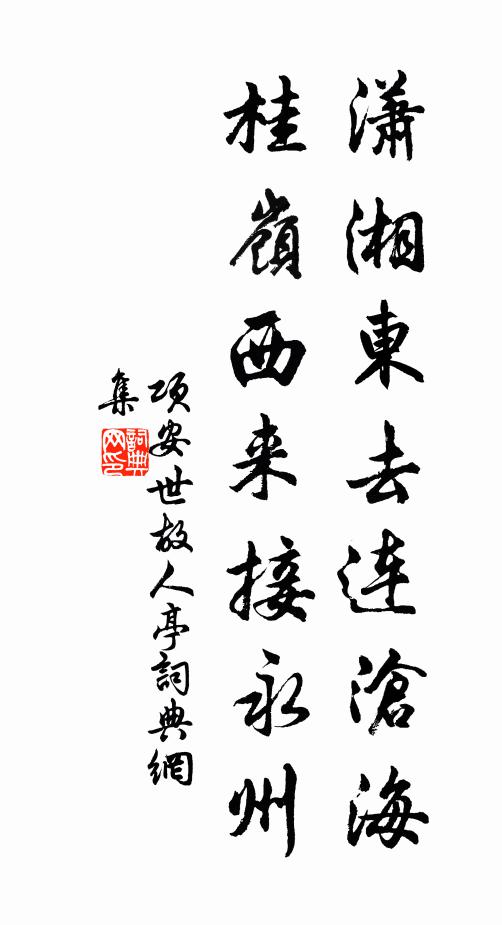 瀟湘東去連滄海
桂嶺西来接永州
项安世故人亭詞典網
集
詞典网印